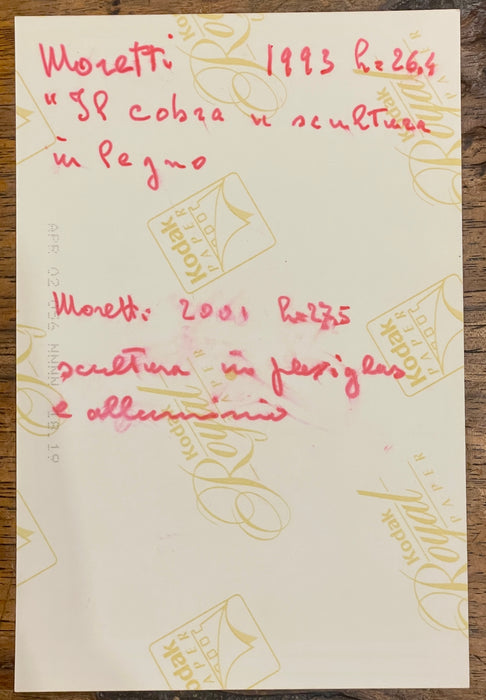 Moretti 1993 h=26,4
"Il cobra" scultura
in legno
Moretti 2001 h=27,5
scultura in plexiglas
e alluminio
Kodak
PAPER
Royal
Kodak
PAPER
Kodak
PAPER
Kodak
Royal
PAPER
Kodak
Royal
PAPER
Kodak
PAPER